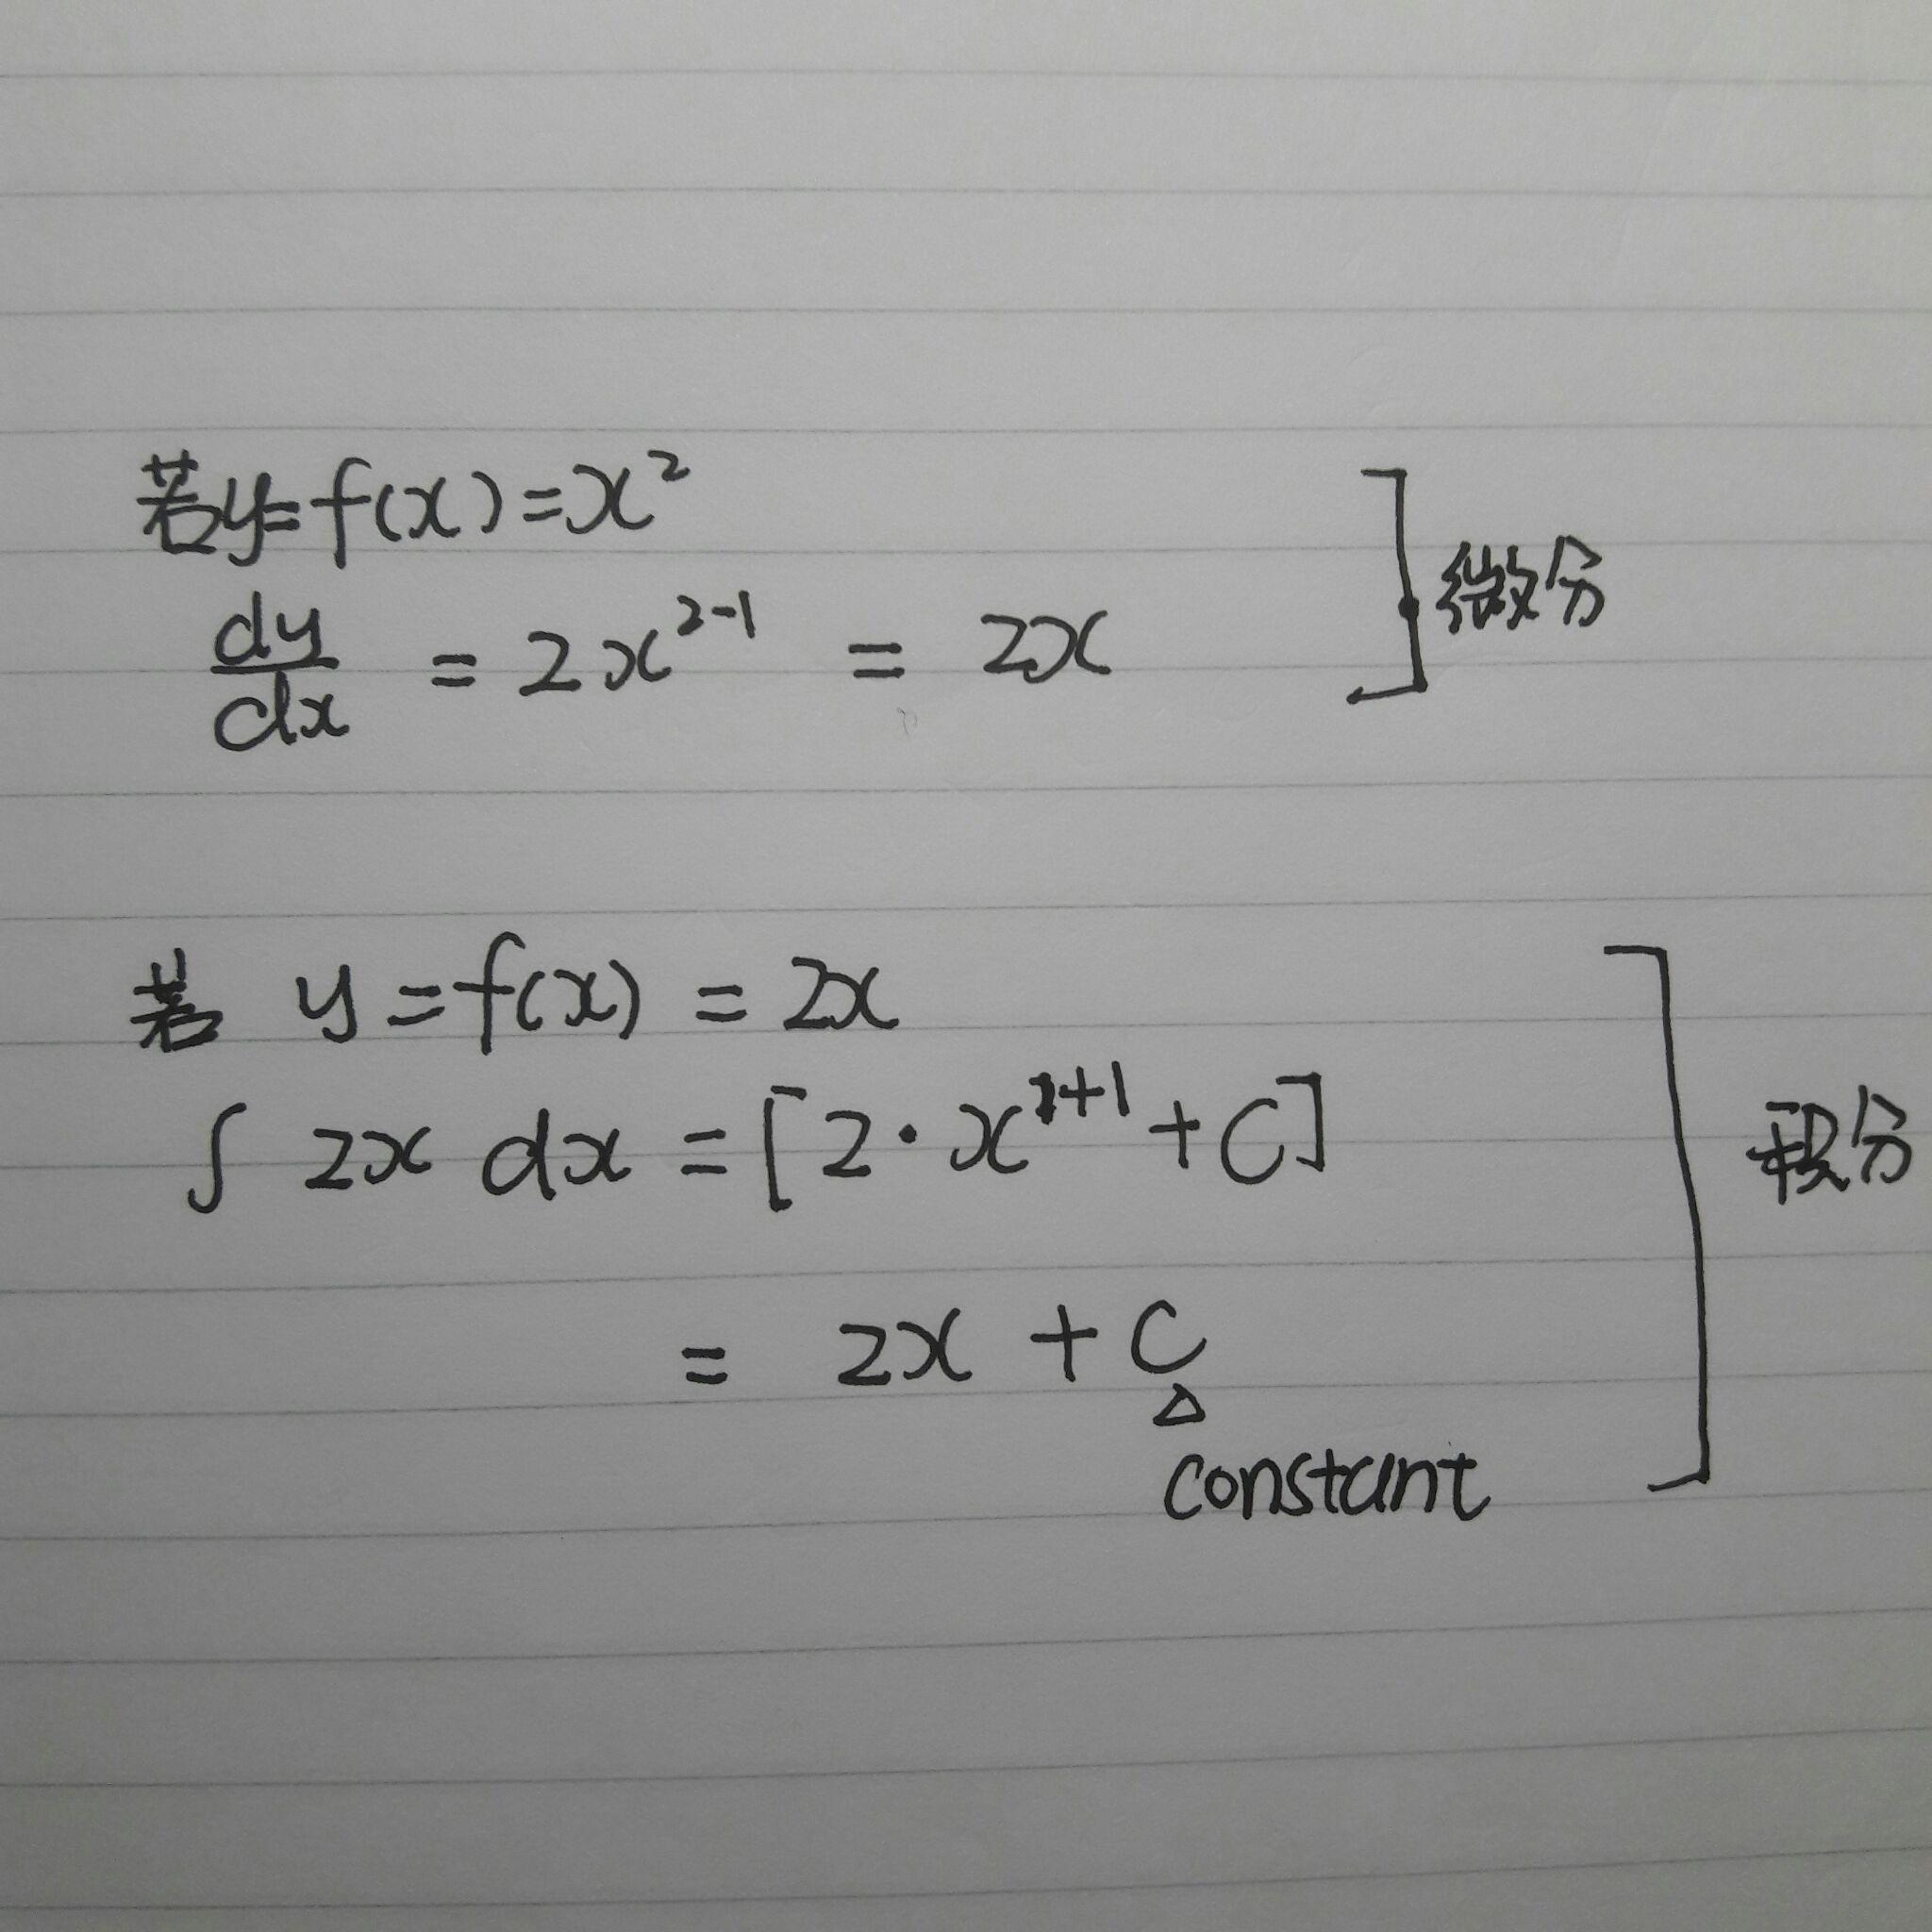 若y=f(x)=x²
dy/dx = 2x²⁻¹ = 2x
微分
若 y=f(x) = 2x
∫ 2x dx = [2·x¹⁺¹ + C]
= 2x + C
△
constant
积分